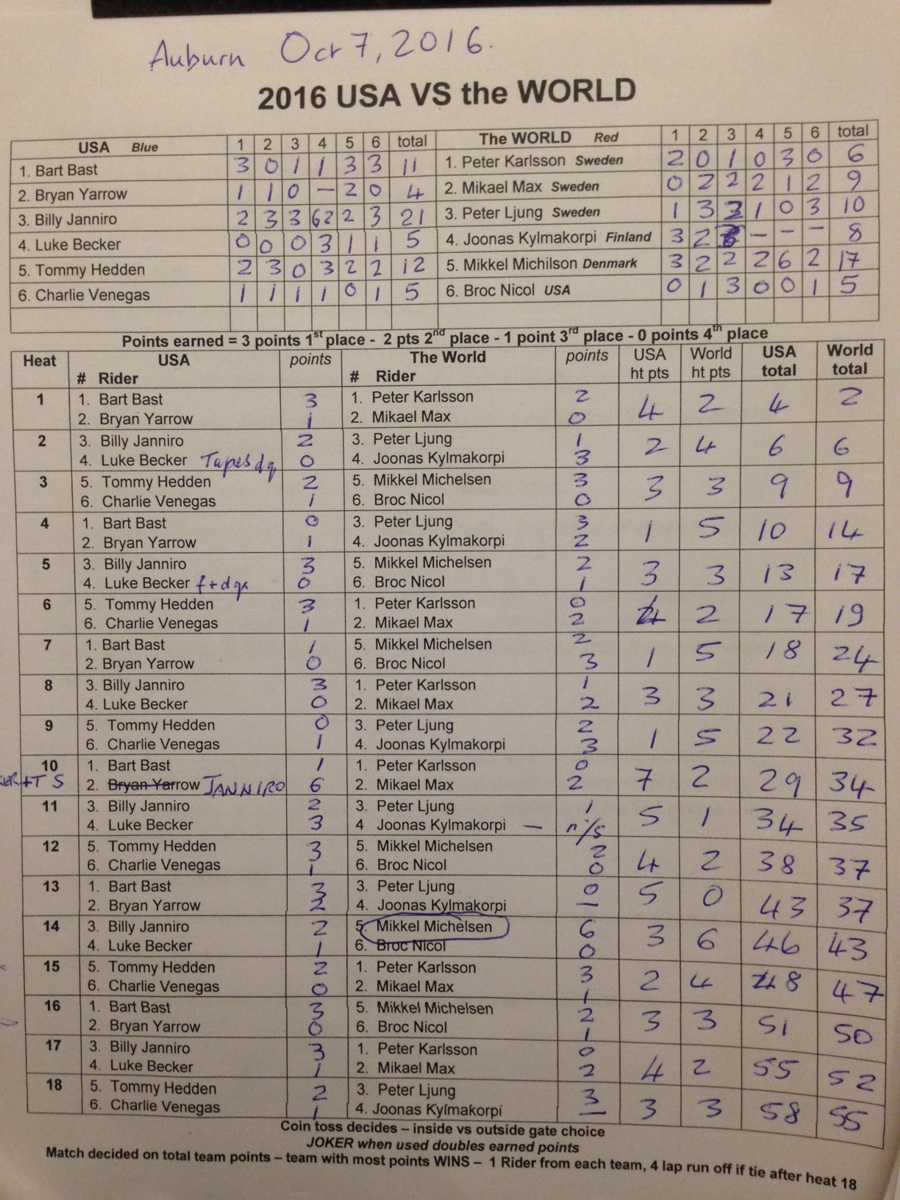 Auburn Oct 7, 2016.
2016 USA VS the WORLD
USA Blue 1 2 3 4 5 6 total The WORLD Red 1 2 3 4 5 6 total
1. Bart Bast 3 0 1 1 3 3 11 1. Peter Karlsson Sweden 2 0 1 0 3 0 6
2. Bryan Yarrow 1 1 0 – 2 0 4 2. Mikael Max Sweden 0 2 2 2 1 2 9
3. Billy Janniro 2 3 3 62 2 3 21 3. Peter Ljung Sweden 1 3 2 1 0 3 10
4. Luke Becker 0 0 0 3 1 1 5 4. Joonas Kylmakorpi Finland 3 2 3 – – – 8
5. Tommy Hedden 2 3 0 3 2 2 12 5. Mikkel Michilson Denmark 3 2 2 2 6 2 17
6. Charlie Venegas 1 1 1 1 0 1 5 6. Broc Nicol USA 0 1 3 0 0 1 5
Points earned = 3 points 1st place - 2 pts 2nd place - 1 point 3rd place - 0 points 4th place
Heat USA points The World points USA World USA World
# Rider # Rider ht pts ht pts total total
1 1. Bart Bast 3 1. Peter Karlsson 2 4 2 4 2
2. Bryan Yarrow 1 2. Mikael Max 0
2 3. Billy Janniro 2 3. Peter Ljung 1 2 4 6 6
4. Luke Becker Tapes dq 0 4. Joonas Kylmakorpi 3
3 5. Tommy Hedden 2 5. Mikkel Michelsen 3 3 3 9 9
6. Charlie Venegas 1 6. Broc Nicol 0
4 1. Bart Bast 0 3. Peter Ljung 3 1 5 10 14
2. Bryan Yarrow 1 4. Joonas Kylmakorpi 2
5 3. Billy Janniro 3 5. Mikkel Michelsen 2 3 3 13 17
4. Luke Becker f+dq 0 6. Broc Nicol 1
6 5. Tommy Hedden 3 1. Peter Karlsson 0 4 2 17 19
6. Charlie Venegas 1 2. Mikael Max 2
7 1. Bart Bast 1 5. Mikkel Michelsen 2 1 5 18 24
2. Bryan Yarrow 0 6. Broc Nicol 3
8 3. Billy Janniro 3 1. Peter Karlsson 1 3 3 21 27
4. Luke Becker 0 2. Mikael Max 2
9 5. Tommy Hedden 0 3. Peter Ljung 2 1 5 22 32
6. Charlie Venegas 1 4. Joonas Kylmakorpi 3
10 1. Bart Bast 1 1. Peter Karlsson 0 7 2 29 34
2. Bryan Yarrow JANNIRO 6 2. Mikael Max 2
11 3. Billy Janniro 2 3. Peter Ljung 1 5 1 34 35
4. Luke Becker 3 4 Joonas Kylmakorpi – n/s
12 5. Tommy Hedden 3 5. Mikkel Michelsen 2 4 2 38 37
6. Charlie Venegas 1 6. Broc Nicol 0
13 1. Bart Bast 3 3. Peter Ljung 0 5 0 43 37
2. Bryan Yarrow 2 4. Joonas Kylmakorpi –
14 3. Billy Janniro 2 5. Mikkel Michelsen 6 3 6 46 43
4. Luke Becker 1 6. Broc Nicol 0
15 5. Tommy Hedden 2 1. Peter Karlsson 3 2 4 48 47
6. Charlie Venegas 0 2. Mikael Max 1
16 1. Bart Bast 3 5. Mikkel Michelsen 2 3 3 51 50
2. Bryan Yarrow 0 6. Broc Nicol 1
17 3. Billy Janniro 3 1. Peter Karlsson 0 4 2 55 52
4. Luke Becker 1 2. Mikael Max 2
18 5. Tommy Hedden 2 3. Peter Ljung 3 3 3 58 55
6. Charlie Venegas 1 4. Joonas Kylmakorpi –
Coin toss decides – inside vs outside gate choice
JOKER when used doubles earned points
Match decided on total team points – team with most points WINS – 1 Rider from each team, 4 lap run off if tie after heat 18